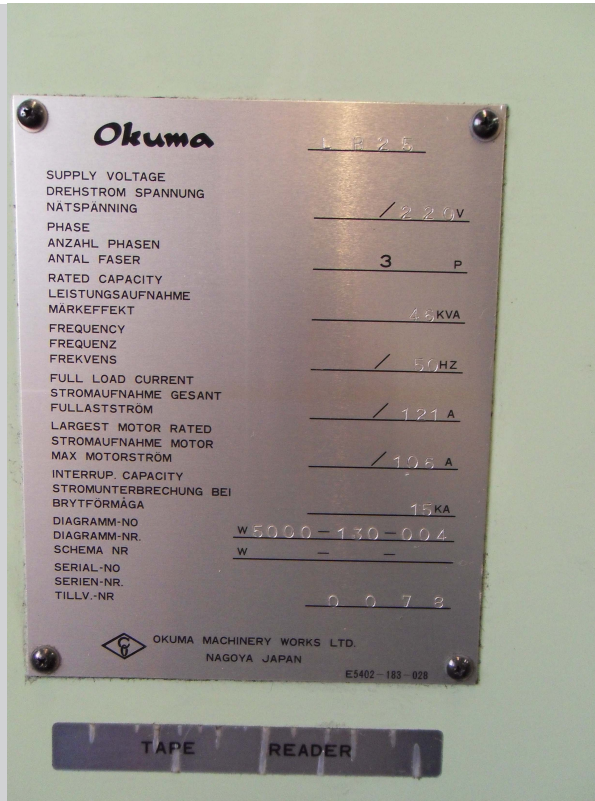 Okuma
SUPPLY VOLTAGE
DREHSTROM SPANNUNG
NÄTSPÄNNING
/220V
PHASE
ANZAHL PHASEN
ANTAL FASER
3 P
RATED CAPACITY
LEISTUNGSAUFNAHME
MÄRKEFFEKT
KVA
FREQUENCY
FREQUENZ
FREKVENS
/ 50HZ
FULL LOAD CURRENT
STROMAUFNAHME GESANT
FULLASTSTRÖM
/ 121 A
LARGEST MOTOR RATED
STROMAUFNAHME MOTOR
MAX MOTORSTRÖM
/ 106 A
INTERRUP. CAPACITY
STROMUNTERBRECHUNG BEI
BRYTFÖRMÅGA
15KA
DIAGRAMM-NO
DIAGRAMM-NR. W 5000-130-004
SCHEMA NR W - -
SERIAL-NO
SERIEN-NR.
TILLV.-NR 0078
OKUMA MACHINERY WORKS LTD.
NAGOYA JAPAN
E5402-183-028
TAPE READER